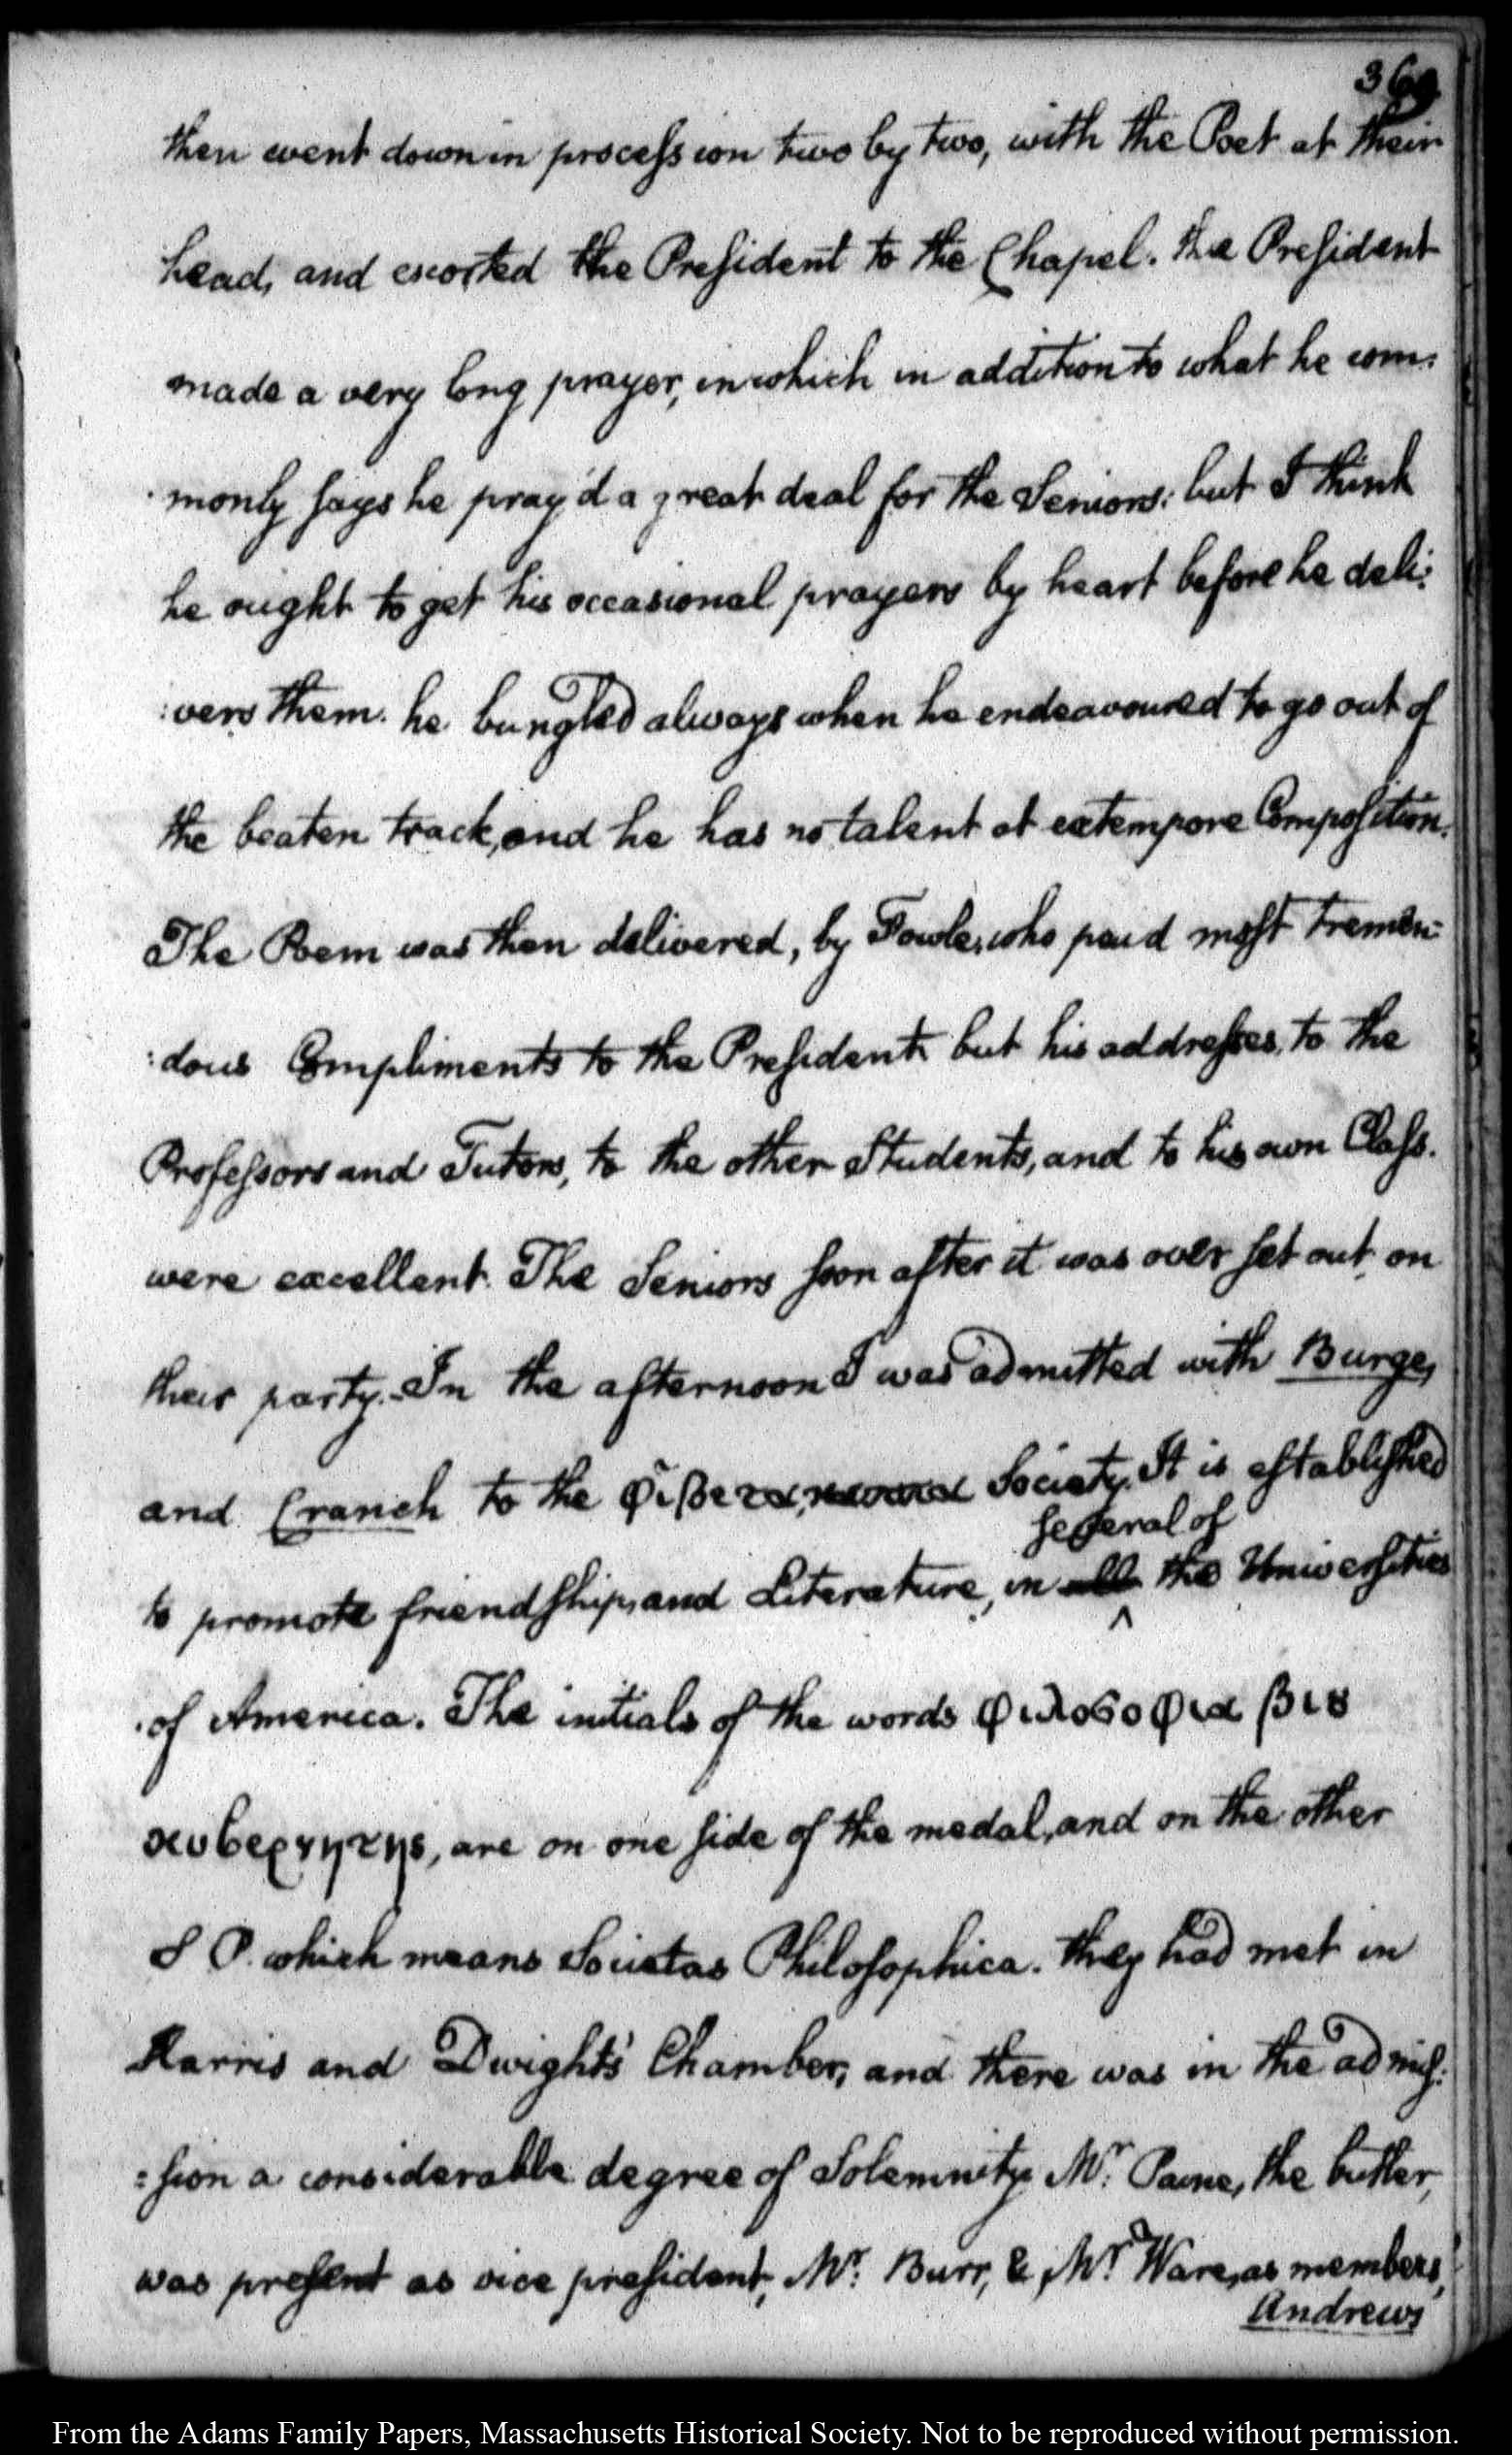 369
then went down in procession two by two, with the Poet at their
head, and escorted the President to the Chapel. the President
made a very long prayer, in which in addition to what he com:
monly says he pray'd a great deal for the Seniors: but I think
he ought to get his occasional prayers by heart before he deli:
:vers them. he bungled always when he endeavoured to go out of
the beaten track, and he has no talent at extempore Composition.
The Poem was then delivered, by Fowle, who paid most tremen:
:dous Compliments to the President but his addresses, to the
Professors and Tutors, to the other Students, and to his own Class.
were excellent. The Seniors soon after it was over set out, on
their party. In the afternoon I was admitted with Burge,
and Cranch to the Society. It is established
several of
to promote friendship, and Literature, in all the Universities
of America. The initials of the words Φιλοσοφια βιȣ
κυβερνητης, are on one side of the medal, and on the other
S P. which means Societas Philosophica. they had met in
Harris and Dwight's Chamber, and there was in the admis:
:sion a considerable degree of Solemnity. Mr. Paine, the butler,
was present as vice president, Mr. Burr, & Mr. Ware, as members,
Andrews
From the Adams Family Papers, Massachusetts Historical Society. Not to be reproduced without permission.